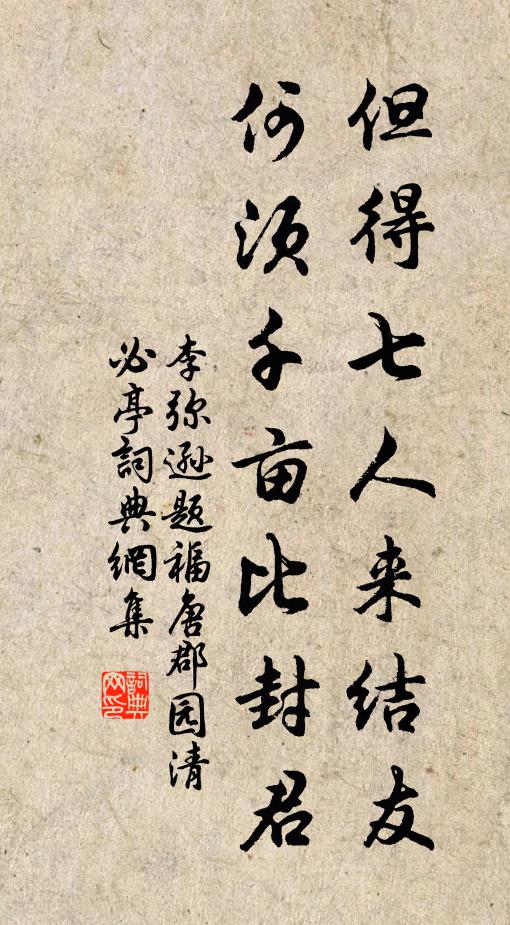 但得七人来结友
何须千亩比封君
李弥逊题福唐郡园清
必亭詞典網集
詞典網印